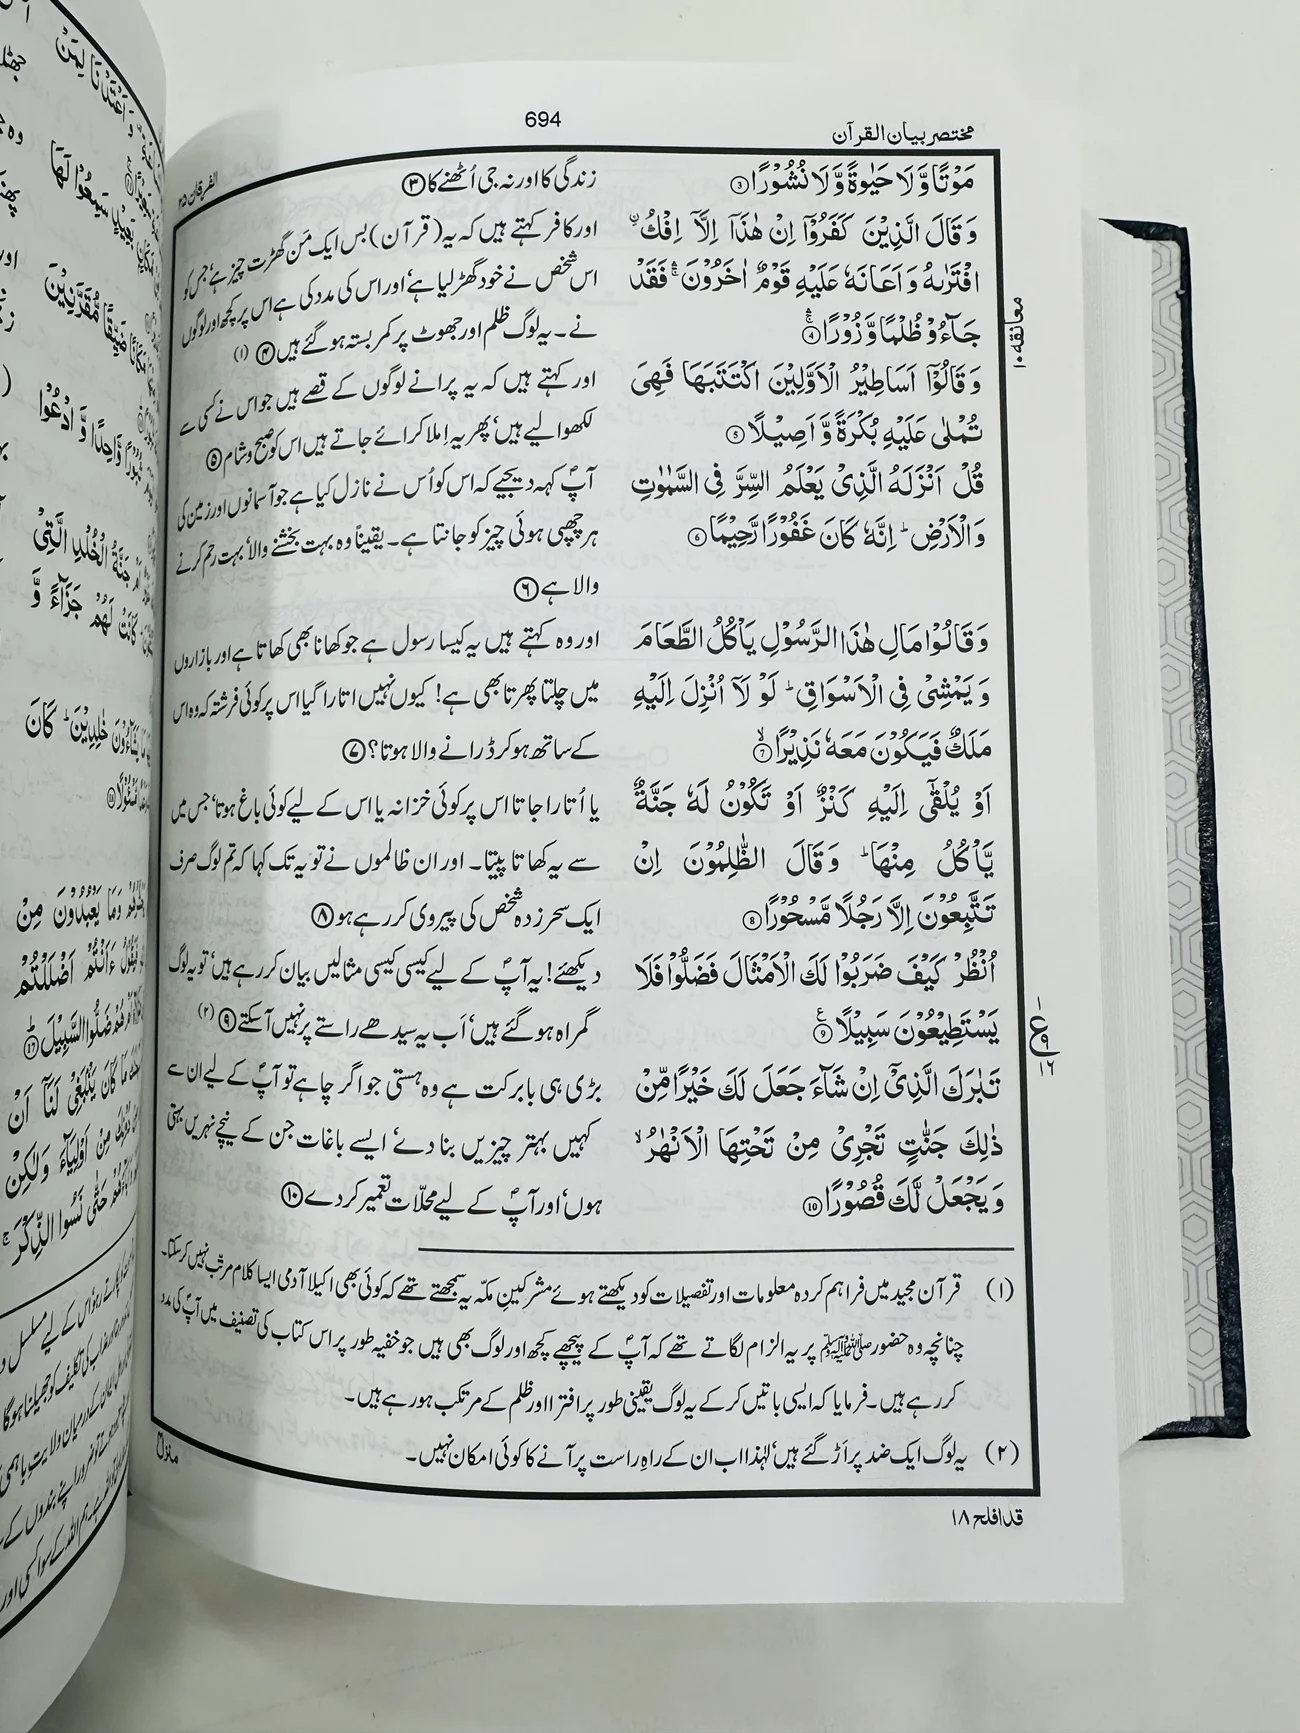 694
مختصر بیان القرآن
الفرقان ۲۵
مَوْتًا وَّلَا حَيٰوةً وَّلَا نُشُوْرًا ③
زندگی کا اور نہ جی اُٹھنے کا ③
وَقَالَ الَّذِيْنَ كَفَرُوْٓا اِنْ هٰذَآ اِلَّآ اِفْكُ ۨ
اور کافر کہتے ہیں کہ یہ (قرآن) بس ایک مَن گھڑت چیز ہے‘ جس کو
افْتَرٰىهُ وَاَعَانَهٗ عَلَيْهِ قَوْمٌ اٰخَرُوْنَ ۛ فَقَدْ
اس شخص نے خود گھڑ لیا ہے‘ اور اس کی مدد کی ہے اس پر کچھ اور لوگوں
جَآءُوْ ظُلْمًا وَّزُوْرًا ④
نے۔ یہ لوگ ظلم اور جھوٹ پر کمربستہ ہو گئے ہیں ④ (۱)
وَقَالُوْٓا اَسَاطِيْرُ الْاَوَّلِيْنَ اكْتَتَبَهَا فَهِيَ
اور کہتے ہیں کہ یہ پرانے لوگوں کے قصے ہیں جو اس نے کسی سے
تُمْلٰى عَلَيْهِ بُكْرَةً وَّاَصِيْلًا ⑤
لکھوا لیے ہیں‘ پھر یہ اِملا کرائے جاتے ہیں اس کو صبح و شام ⑤
قُلْ اَنْزَلَهُ الَّذِيْ يَعْلَمُ السِّرَّ فِي السَّمٰوٰتِ
آپؐ کہہ دیجیے کہ اس کو اُس نے نازل کیا ہے جو آسمانوں اور زمین کی
وَالْاَرْضِ ؕ اِنَّهٗ كَانَ غَفُوْرًا رَّحِيْمًا ⑥
ہر چھپی ہوئی چیز کو جانتا ہے۔ یقیناً وہ بہت بخشنے والا‘ بہت رحم کرنے
والا ہے ⑥
وَقَالُوْا مَالِ هٰذَا الرَّسُوْلِ يَاْكُلُ الطَّعَامَ
اور وہ کہتے ہیں یہ کیسا رسول ہے جو کھانا بھی کھاتا ہے اور بازاروں
وَيَمْشِيْ فِي الْاَسْوَاقِ ؕ لَوْ لَآ اُنْزِلَ اِلَيْهِ
میں چلتا پھرتا بھی ہے! کیوں نہیں اتارا گیا اس پر کوئی فرشتہ کہ وہ اس
مَلَكٌ فَيَكُوْنَ مَعَهٗ نَذِيْرًا ۙ ⑦
کے ساتھ ہو کر ڈرانے والا ہوتا؟ ⑦
اَوْ يُلْقٰٓى اِلَيْهِ كَنْزٌ اَوْ تَكُوْنُ لَهٗ جَنَّةٌ
یا اُتارا جاتا اس پر کوئی خزانہ یا اس کے لیے کوئی باغ ہوتا‘ جس میں
يَّاْكُلُ مِنْهَا ؕ وَقَالَ الظّٰلِمُوْنَ اِنْ
سے یہ کھاتا پیتا۔ اور ان ظالموں نے تو یہ تک کہا کہ تم لوگ صرف
تَتَّبِعُوْنَ اِلَّا رَجُلًا مَّسْحُوْرًا ⑧
ایک سحر زدہ شخص کی پیروی کر رہے ہو ⑧
اُنْظُرْ كَيْفَ ضَرَبُوْا لَكَ الْاَمْثَالَ فَضَلُّوْا فَلَا
دیکھئے! یہ آپؐ کے لیے کیسی کیسی مثالیں بیان کر رہے ہیں‘ تو یہ لوگ
يَسْتَطِيْعُوْنَ سَبِيْلًا ⑨
گمراہ ہو گئے ہیں‘ اَب یہ سیدھے راستے پر نہیں آ سکتے ⑨ (۲)
تَبٰرَكَ الَّذِيْٓ اِنْ شَآءَ جَعَلَ لَكَ خَيْرًا مِّنْ
بڑی ہی بابرکت ہے وہ ہستی جو اگر چاہے تو آپؐ کے لیے ان سے
ذٰلِكَ جَنّٰتٍ تَجْرِيْ مِنْ تَحْتِهَا الْاَنْهٰرُ ۙ
کہیں بہتر چیزیں بنا دے‘ ایسے باغات جن کے نیچے نہریں بہتی
وَيَجْعَلْ لَّكَ قُصُوْرًا ⑩
ہوں‘ اور آپؐ کے لیے محلّات تعمیر کر دے ⑩
معانقه ۱۰
۱
ع
۹
۱۶
(۱) قرآن مجید میں فراہم کردہ معلومات اور تفصیلات کو دیکھتے ہوئے مشرکین مکہ یہ سمجھتے تھے کہ کوئی بھی اکیلا آدمی ایسا کلام مرتب نہیں کر سکتا۔
چنانچہ وہ حضور ﷺ پر یہ الزام لگاتے تھے کہ آپؐ کے پیچھے کچھ اور لوگ بھی ہیں جو خفیہ طور پر اس کتاب کی تصنیف میں آپؐ کی مدد
کر رہے ہیں۔ فرمایا کہ ایسی باتیں کر کے یہ لوگ یقینی طور پر افترا اور ظلم کے مرتکب ہو رہے ہیں۔
(۲) یہ لوگ ایک ضد پر اَڑ گئے ہیں‘ لہٰذا اب ان کے راہِ راست پر آنے کا کوئی امکان نہیں۔
قد افلح ۱۸
وَاَعْتَدْنَا لِمَنْ
سَمِعُوْا لَهَا
مَكَانًا ضَيِّقًا مُّقَرَّنِيْنَ
ثُبُوْرًا وَّاحِدًا وَّادْعُوْا
اَمْ جَنَّةُ الْخُلْدِ الَّتِيْ
كَانَتْ لَهُمْ جَزَآءً وَّ
خٰلِدِيْنَ ؕ كَانَ
وَمَا يَعْبُدُوْنَ مِنْ
ءَاَنْتُمْ اَضْلَلْتُمْ
ضَلُّوا السَّبِيْلَ ؕ ⑰
مَا كَانَ يَنْۢبَغِيْ لَنَآ اَنْ
مِنْ اَوْلِيَآءَ وَلٰكِنْ
حَتّٰى نَسُوا الذِّكْرَ ۚ